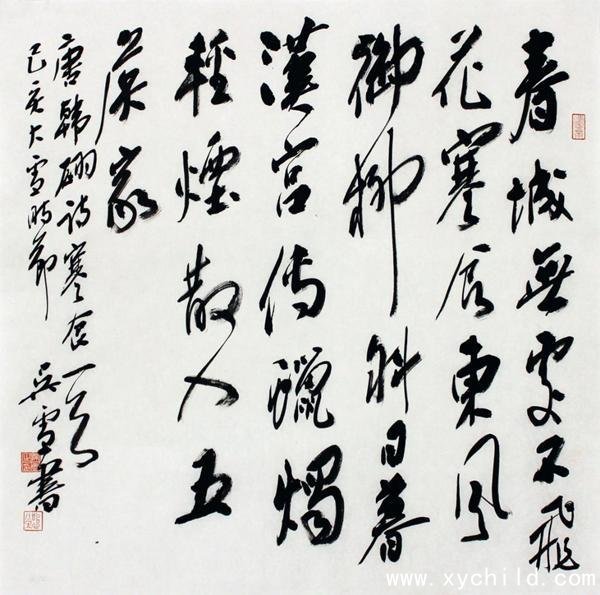 春城無處不飛
花寒食東風
御柳斜日暮
漢宮傳蠟燭
輕煙散入五
矦家
唐韓翃詩寒食一首
己亥大雪時節
吳雪書
www.xychild.com